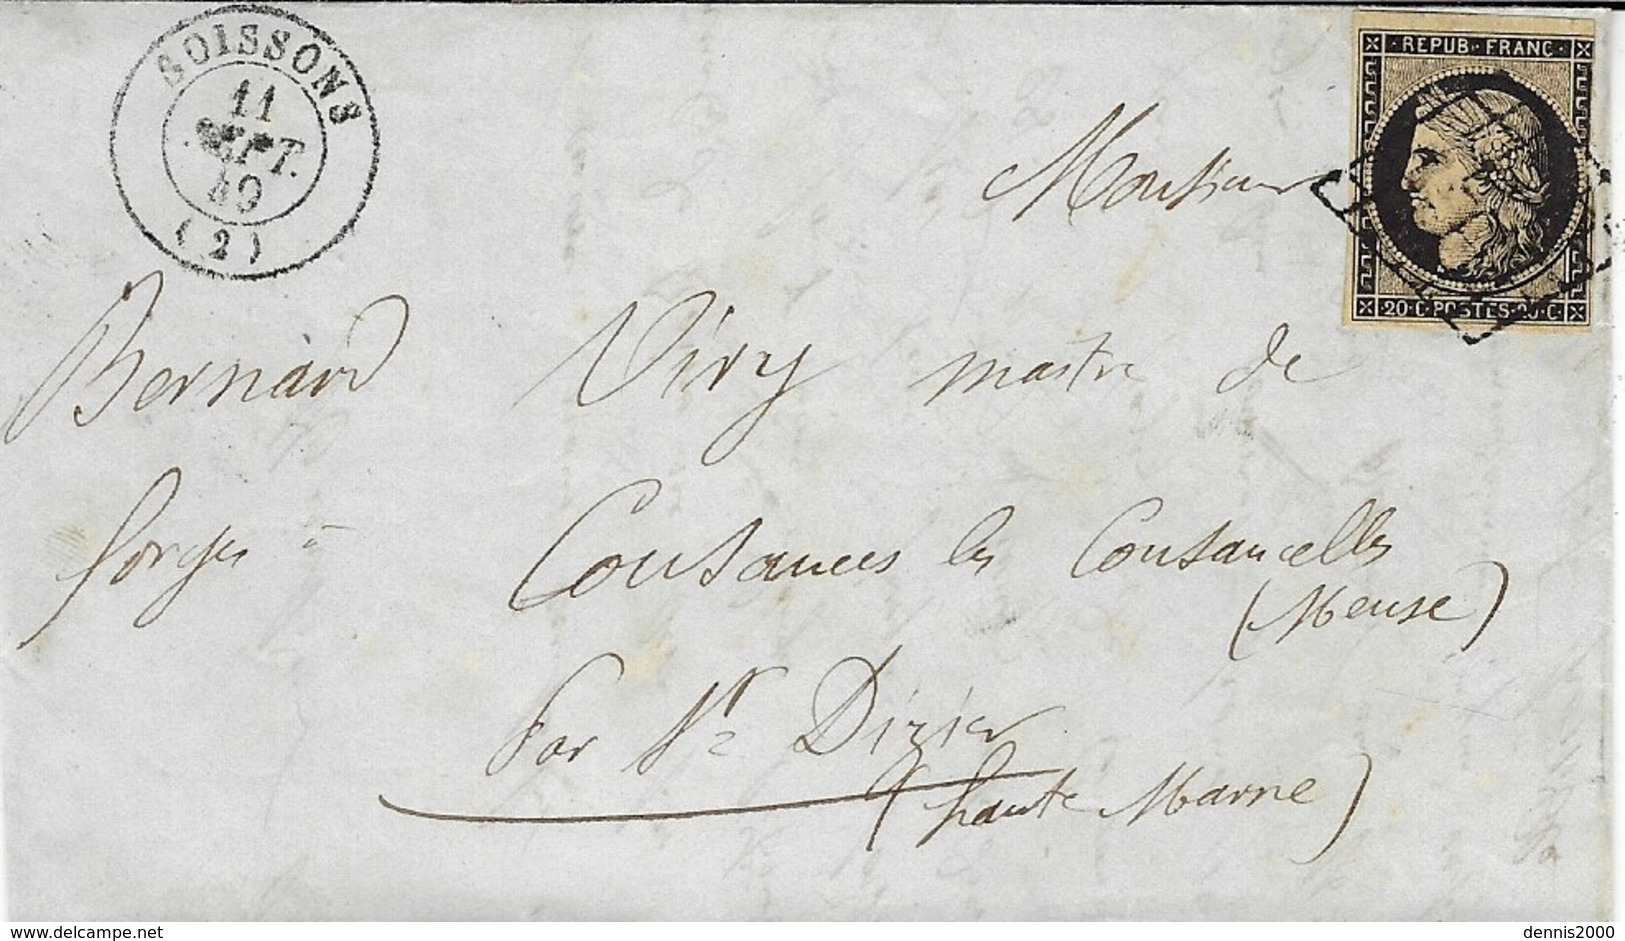 SOISSONS
11
SEPT.
49
(2)
REPUB. FRANC.
20·C·POSTES·20·C
Monsieur
Bernard Viry maitre de
forges à Cousances les Cousancelles
(Meuse)
Par St Dizier
(haute Marne)
delcampe.net
dennis2000